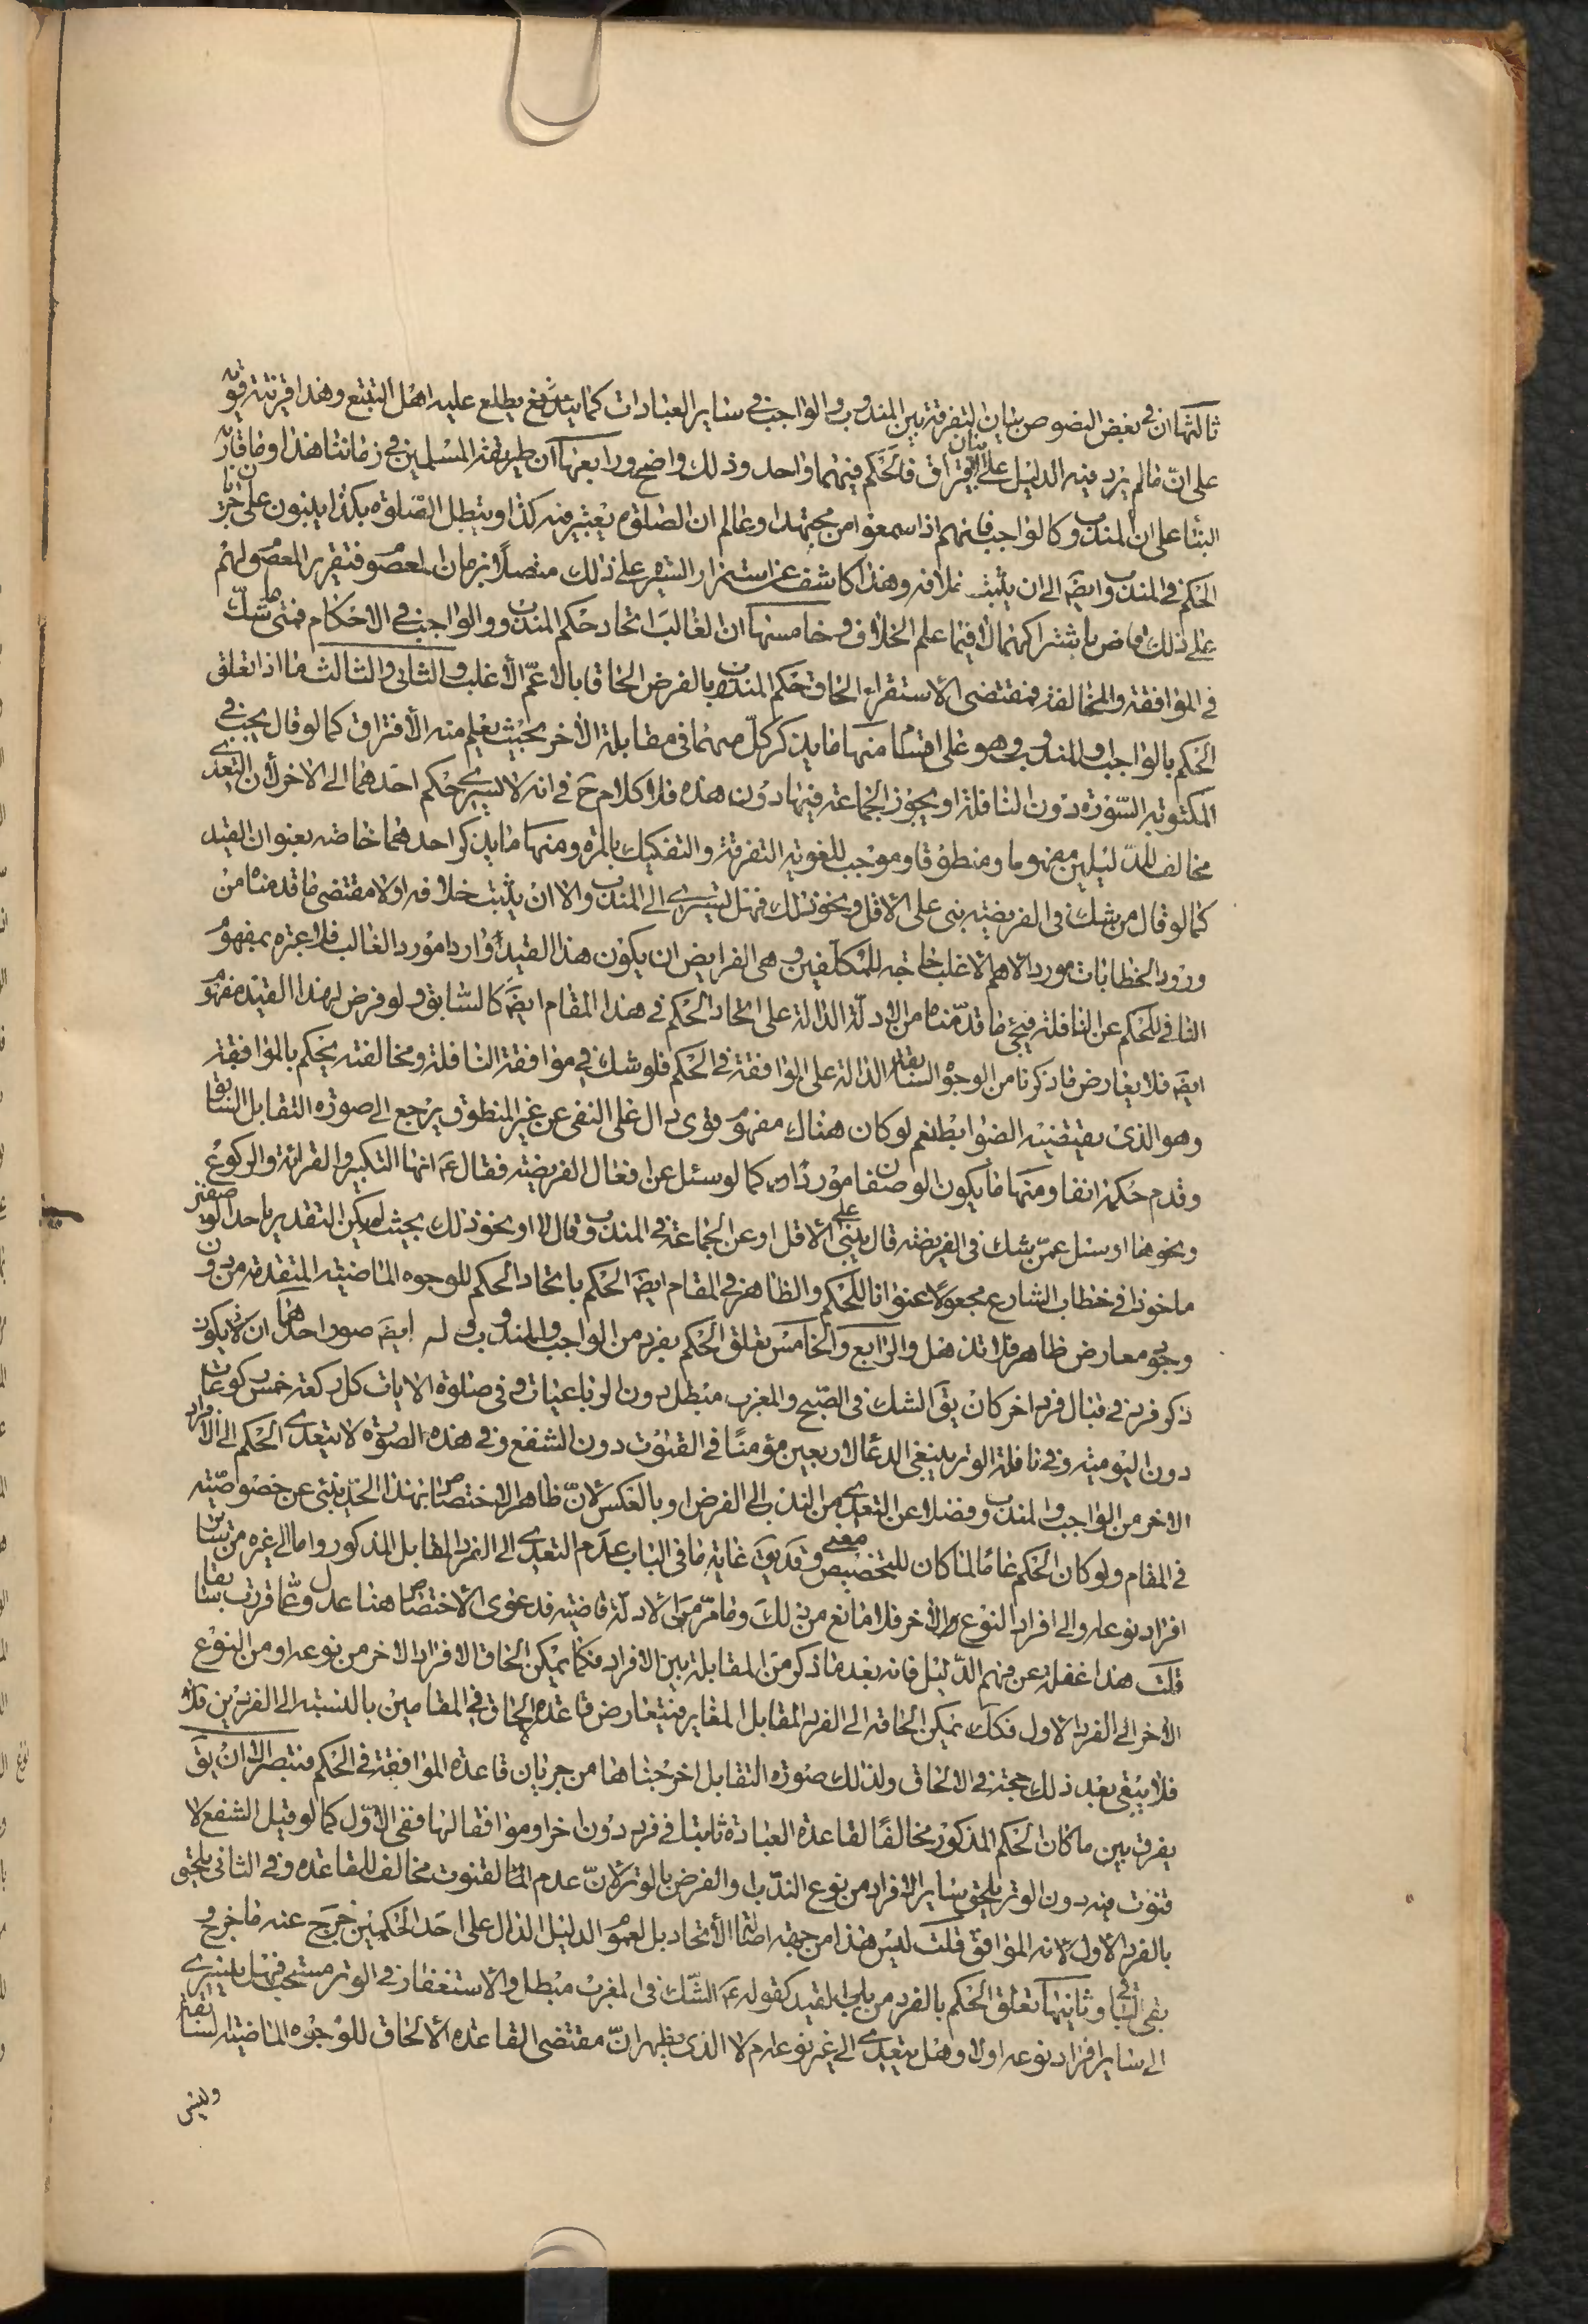 ثالثها ان في بعض النصوص بيان التفرقة بين المندوب والواجب في ساير العبادات كما يطلع عليه اهل التتبع وهذا قرينة قوية
على ان ما لم يرد فيه الدليل على بيان الافتراق فالحكم فيهما واحد وذلك واضح ورابعها ان طريقة المسلمين في زماننا هذا وما قاربه
البناء على ان المندوب كالواجب فانهم اذا سمعوا من مجتهد او عالم ان الصلوة يعتبر فيه كذا او يبطل الصلوة بكذا يبنون على جريان
الحكم في المندوب ايضا الى ان يثبت خلافه وهذا كاشف عن استمرار السيرة على ذلك متصلا بزمان المعصوم فتقرير المعصوم لهم
على ذلك ماض باشتراكهما الا فيما علم الخلاف وخامسها ان الغالب اتحاد حكم المندوب والواجب في الاحكام فمتى شك
في الموافقة والمخالفة فمقتضى الاستقراء الحاق حكم المندوب بالفرض الحاقا بالاعم الاغلب والثاني والثالث ما اذا تعلق
الحكم بالواجب والمندوب وهو على اقسام منها ما يذكر كل منهما في مقابلة الاخر بحيث يعلم منه الافتراق كما لو قال يجب في
المكتوبة السورة دون النافلة او يجوز الجماعة فيها دون هذه فلا كلام ح في انه لا يسري حكم احدهما الى الاخر لأن التعدي
مخالف للدليلين مفهوما ومنطوقا وموجب للغوية التفرقة والتفكيك بالمرة ومنها ما يذكر احدهما خاصة بعنوان القيد
كما لو قال من شك في الفريضة بنى على الاقل ونحو ذلك فهل يسري الى المندوب الا ان يثبت خلافه او لا مقتضى ما قدمناه من
ورود الخطابات مورد الاهم الاغلب حاجة للمكلفين وهي الفرايض ان يكون هذا القيد واردا مورد الغالب فلا عبرة بمفهومه
النافي للحكم عن النافلة فيجئ ما قدمناه من الادلة الدالة على اتحاد الحكم في هذا المقام ايضا كالسابق ولو فرض لهذا القيد مفهوم
ايضا فلا يعارض ما ذكرنا من الوجوه السابقة الدالة على الموافقة في الحكم فلو شك في موافقة النافلة ومخالفته يحكم بالموافقة
وهو الذي يقتضيه الضوابط نعم لو كان هناك مفهوم قوي دال على النفي عن غير المنطوق يرجع الى صورة التقابل السابق
وقدم حكمه انفا ومنها ما يكون الوصفان موردا كما لو سئل عن افعال الفريضة فقال ع انها التكبير والقرائة والركوع
ونحوها او سئل عمن شك في الفريضة قال يبني على الاقل او عن الجماعة في المندوب قال لا او نحو ذلك بحيث لم يكن التقدير باحد الوصفين
ماخوذا في خطاب الشارع مجعولا عنوانا للحكم والظاهر في المقام ايضا الحكم باتحاد الحكم للوجوه الماضية المتقدمة من دون
وجود معارض ظاهر فلا تذهل والرابع والخامس تعلق الحكم بفرد من الواجب والمندوب وله ايضا صور احدها ان لا يكون
ذكر فرد في قبال فرد اخر كان يق الشك في الصبح والمغرب مبطل دون الرباعيات وفي صلوة الايات كل ركعة خمس ركوعات
دون اليومية وفي نافلة الوتر ينبغي الدعاء لاربعين مؤمنا في القنوت دون الشفع وفي هذه الصورة لا يتعدى الحكم الى الافراد
الاخر من الواجب والمندوب فضلا عن التعدي من الندب الى الفرض او بالعكس لان ظاهر الاختصاص بهذا الحد ينبئ عن خصوصيته
في المقام ولو كان الحكم عاما لما كان للتخصيص معنى وقد يق غاية ما في الباب عدم التعدي الى الفرد المقابل المذكور واما الى غيره من ساير
افراد نوعه والى افراد النوع الاخر فلا مانع من ذلك وما مر من الادلة قاضية فدعوى الاختصاص هنا عدول عما قررت سابقا
قلت هذا غفلة عن فهم الدليل فانه بعد ما ذكر من المقابلة بين الافراد فكما يمكن الحاق الافراد الاخر من نوعه او من النوع
الاخر الى الفرد الاول فكك يمكن الحاقه الى الفرد المقابل المغاير فيتعارض قاعدة الالحاق في المقامين بالنسبة الى الفردين
فلا يبقى بعد ذلك حجة في الالحاق ولذلك صورة التقابل اخرجناها من جريان قاعدة الموافقة في الحكم فتبصر الا ان يق
يفرق بين ما كان الحكم المذكور مخالفا لقاعدة العبادة ثابتا في فرد دون اخر او موافقا لها ففي الاول كما لو قيل الشفع لا
قنوت فيه دون الوتر يلحق ساير الافراد من نوع الندب او الفرض بالوتر لان عدم القنوت مخالف للقاعدة وفي الثاني يلحق
بالفرد الاول لانه الموافق قلت ليس هذا من جهة اصالة الاتحاد بل لعموم الدليل الدال على احد الحكمين خرج عنه ما خرج و
بقي الباقي وثانيها تعلق الحكم بالفرد من باب القيد كقوله ع الشك في المغرب مبطل والاستغفار في الوتر مستحب فهل يسري
الى ساير افراد نوعه او لا وهل يتعدى الى غير نوعه ام لا الذي يظهر ان مقتضى القاعدة الالحاق للوجوه الماضية السابقة
وليس